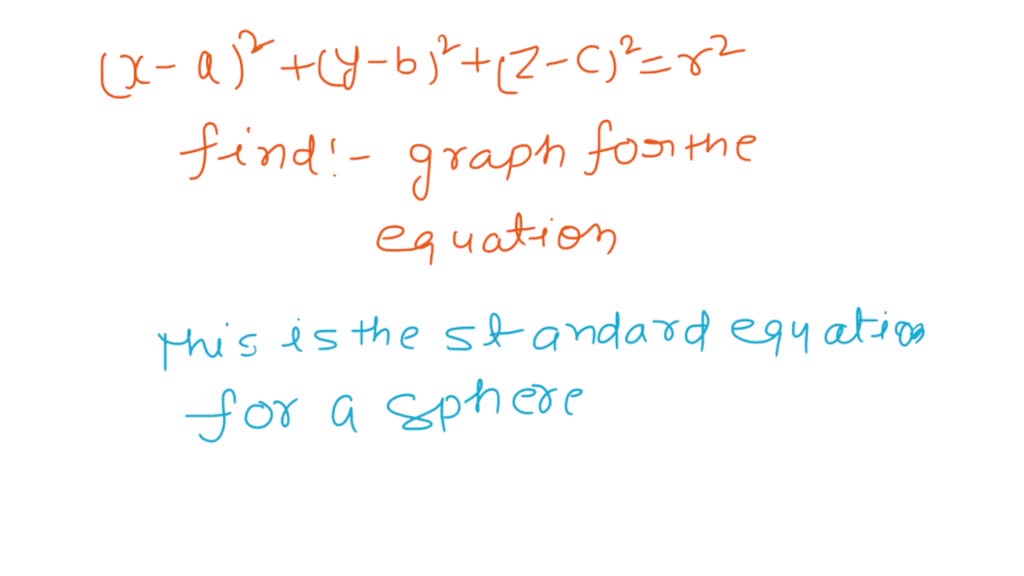 (x-a)²+(y-b)²+(z-c)²=r²
find:- graph for the
equation
This is the standard equation
for a sphere